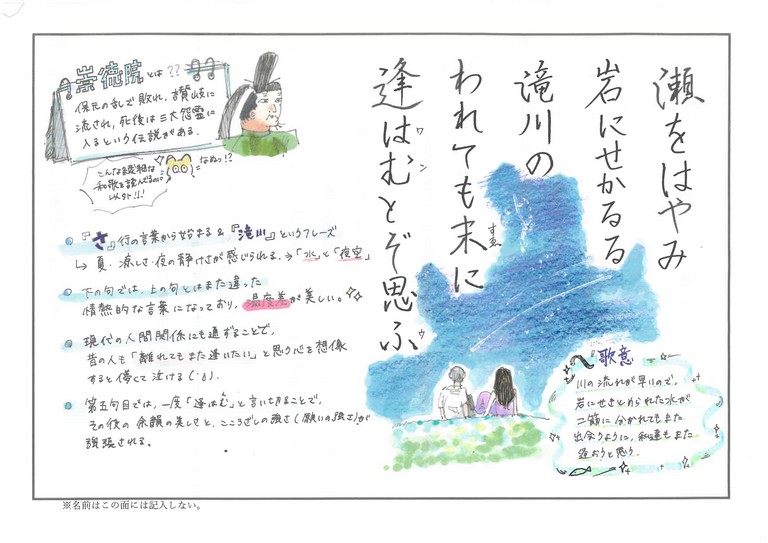 瀬をはやみ
岩にせかるる
滝川の
われても末に
すゑ
逢はむとぞ思ふ
ワ ン
ウ
歌意
川の流れが早いので、
岩にせきとめられた水が
二筋に分かれてもまた
出会うように、私達もまた
逢おうと思う。
崇徳院とは??
保元の乱で敗れ、讃岐に
流され、死後は三大怨霊に
入るという伝説がある.
こんな繊細な
和歌を詠んでるのに
以外!!!
なぬっ!?
『さ』行の言葉からはじまる & 『滝川』というフレーズ
↳ 夏・涼しさ・夜の静けさが感じられる. → 「水」と「夜空」
下の句では、上の句とはまた違った
情熱的な言葉になっており、温度差が美しい。
現代の人間関係にも通ずることで、
昔の人も「離れてもまた逢いたい」と思う心を想像
すると儚くて泣ける
第五句目では、一度「逢はむ」と言いきることで、
その後の余韻の美しさと、こころざしの強さ(願いの強さ)が
強張される。
※名前はこの面には記入しない。